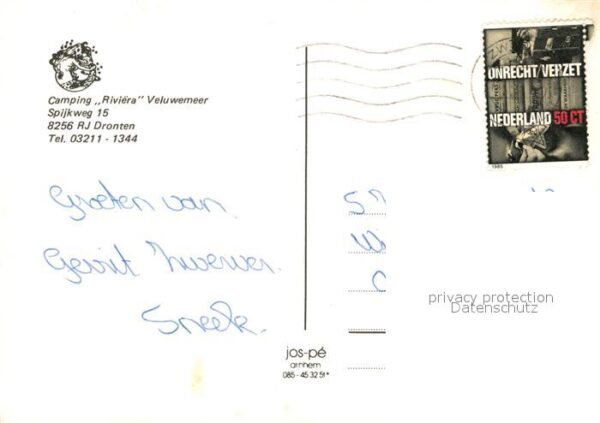 Camping „Riviëra” Veluwemeer
Spijkweg 15
8256 RJ Dronten
Tel. 03211 - 1344
Groeten van
Gerrit
Sneek.
ONRECHT/VERZET
NEDERLAND 50 CT
1985
privacy protection
Datenschutz
jos-pé
arnhem
085 - 45 32 51*